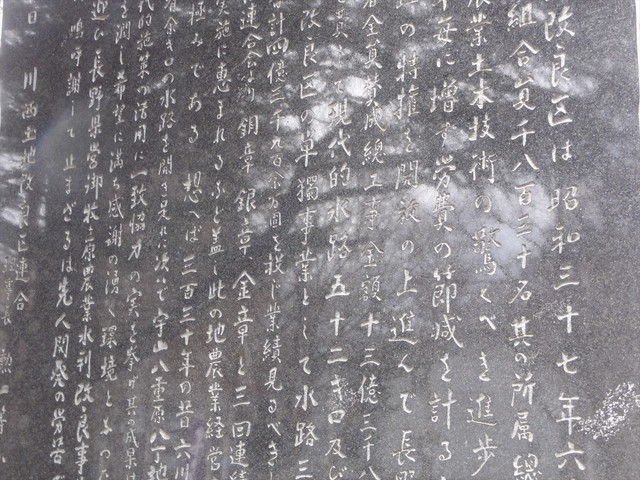 改良区は昭和三十七年六
組合員千八百三十名其の所属總
農業土木技術の驚くべき進歩
年毎に増す労費の節減を計る
の特権を開放の上進んで長野
全員賛成總工事金額十三億三千八
て現代的水路五十二キロ及び
改良区の単獨事業として水路三
計四億三千九百余万圓を投じ業績見るべき
連合会より銅章銀章金章と三回連続
実施に恵まれるなど蓋し此の地農業経営
極みである想へば三百三十年の昔六川
余キロの水路を開き見れに次いで宇山八重原八丁地
代的施策の活用に一致協力の実を挙げ其の成果は
を潤し希望に満ち感謝の湧く環境となった
迎ひ長野県営御牧原農業水利改良事
嗚呼謝して止まざるは先人開発の労苦
日 川西土地改良区連合
理事長 勲